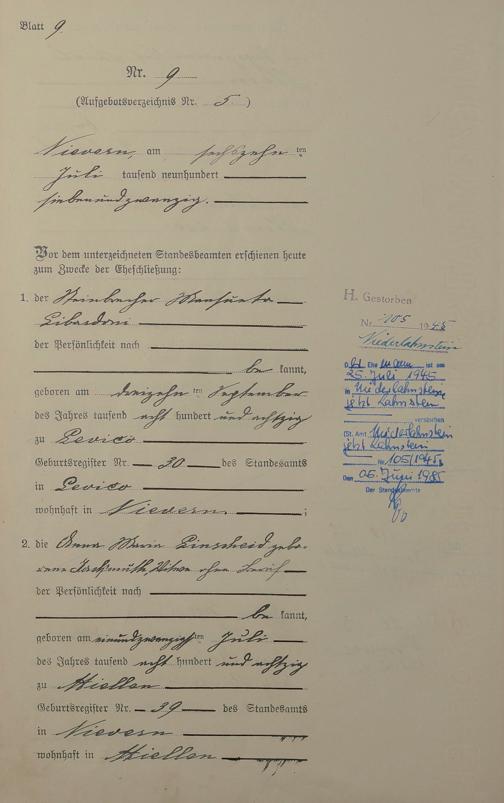 Blatt 9
Nr. 9
(Aufgebotsverzeichnis Nr. 5)
Nievern, am sechszehn ten
Juli tausend neunhundert
siebenundzwanzig.
Vor dem unterzeichneten Standesbeamten erschienen heute
zum Zwecke der Eheschließung:
1. der Steinbrecher Mansueto
Libardoni
der Persönlichkeit nach
be kannt,
geboren am dreizehn ten September
des Jahres tausend acht hundert und achtzig
zu Levico
Geburtsregister Nr. 30 des Standesamts
in Levico
wohnhaft in Nievern ;
2. die Anna Maria Linscheid gebo-
rene Witwe ohne Beruf
der Persönlichkeit nach
be kannt,
geboren am einundzwanzigsten Juli
des Jahres tausend acht hundert und achtzig
zu Miellen
Geburtsregister Nr. 39 des Standesamts
in Nievern
wohnhaft in Miellen
H. Gestorben
Nr. 105 1945
Niederlahnstein
D er Ehe mann ist am
25. Juli 1945
in Niederlahnstein
jetzt Lahnstein
verstorben
(St. Amt Niederlahnstein
jetzt Lahnstein
Nr. 105/1945)
Den 05. Juni 1985
Der Standesbeamte